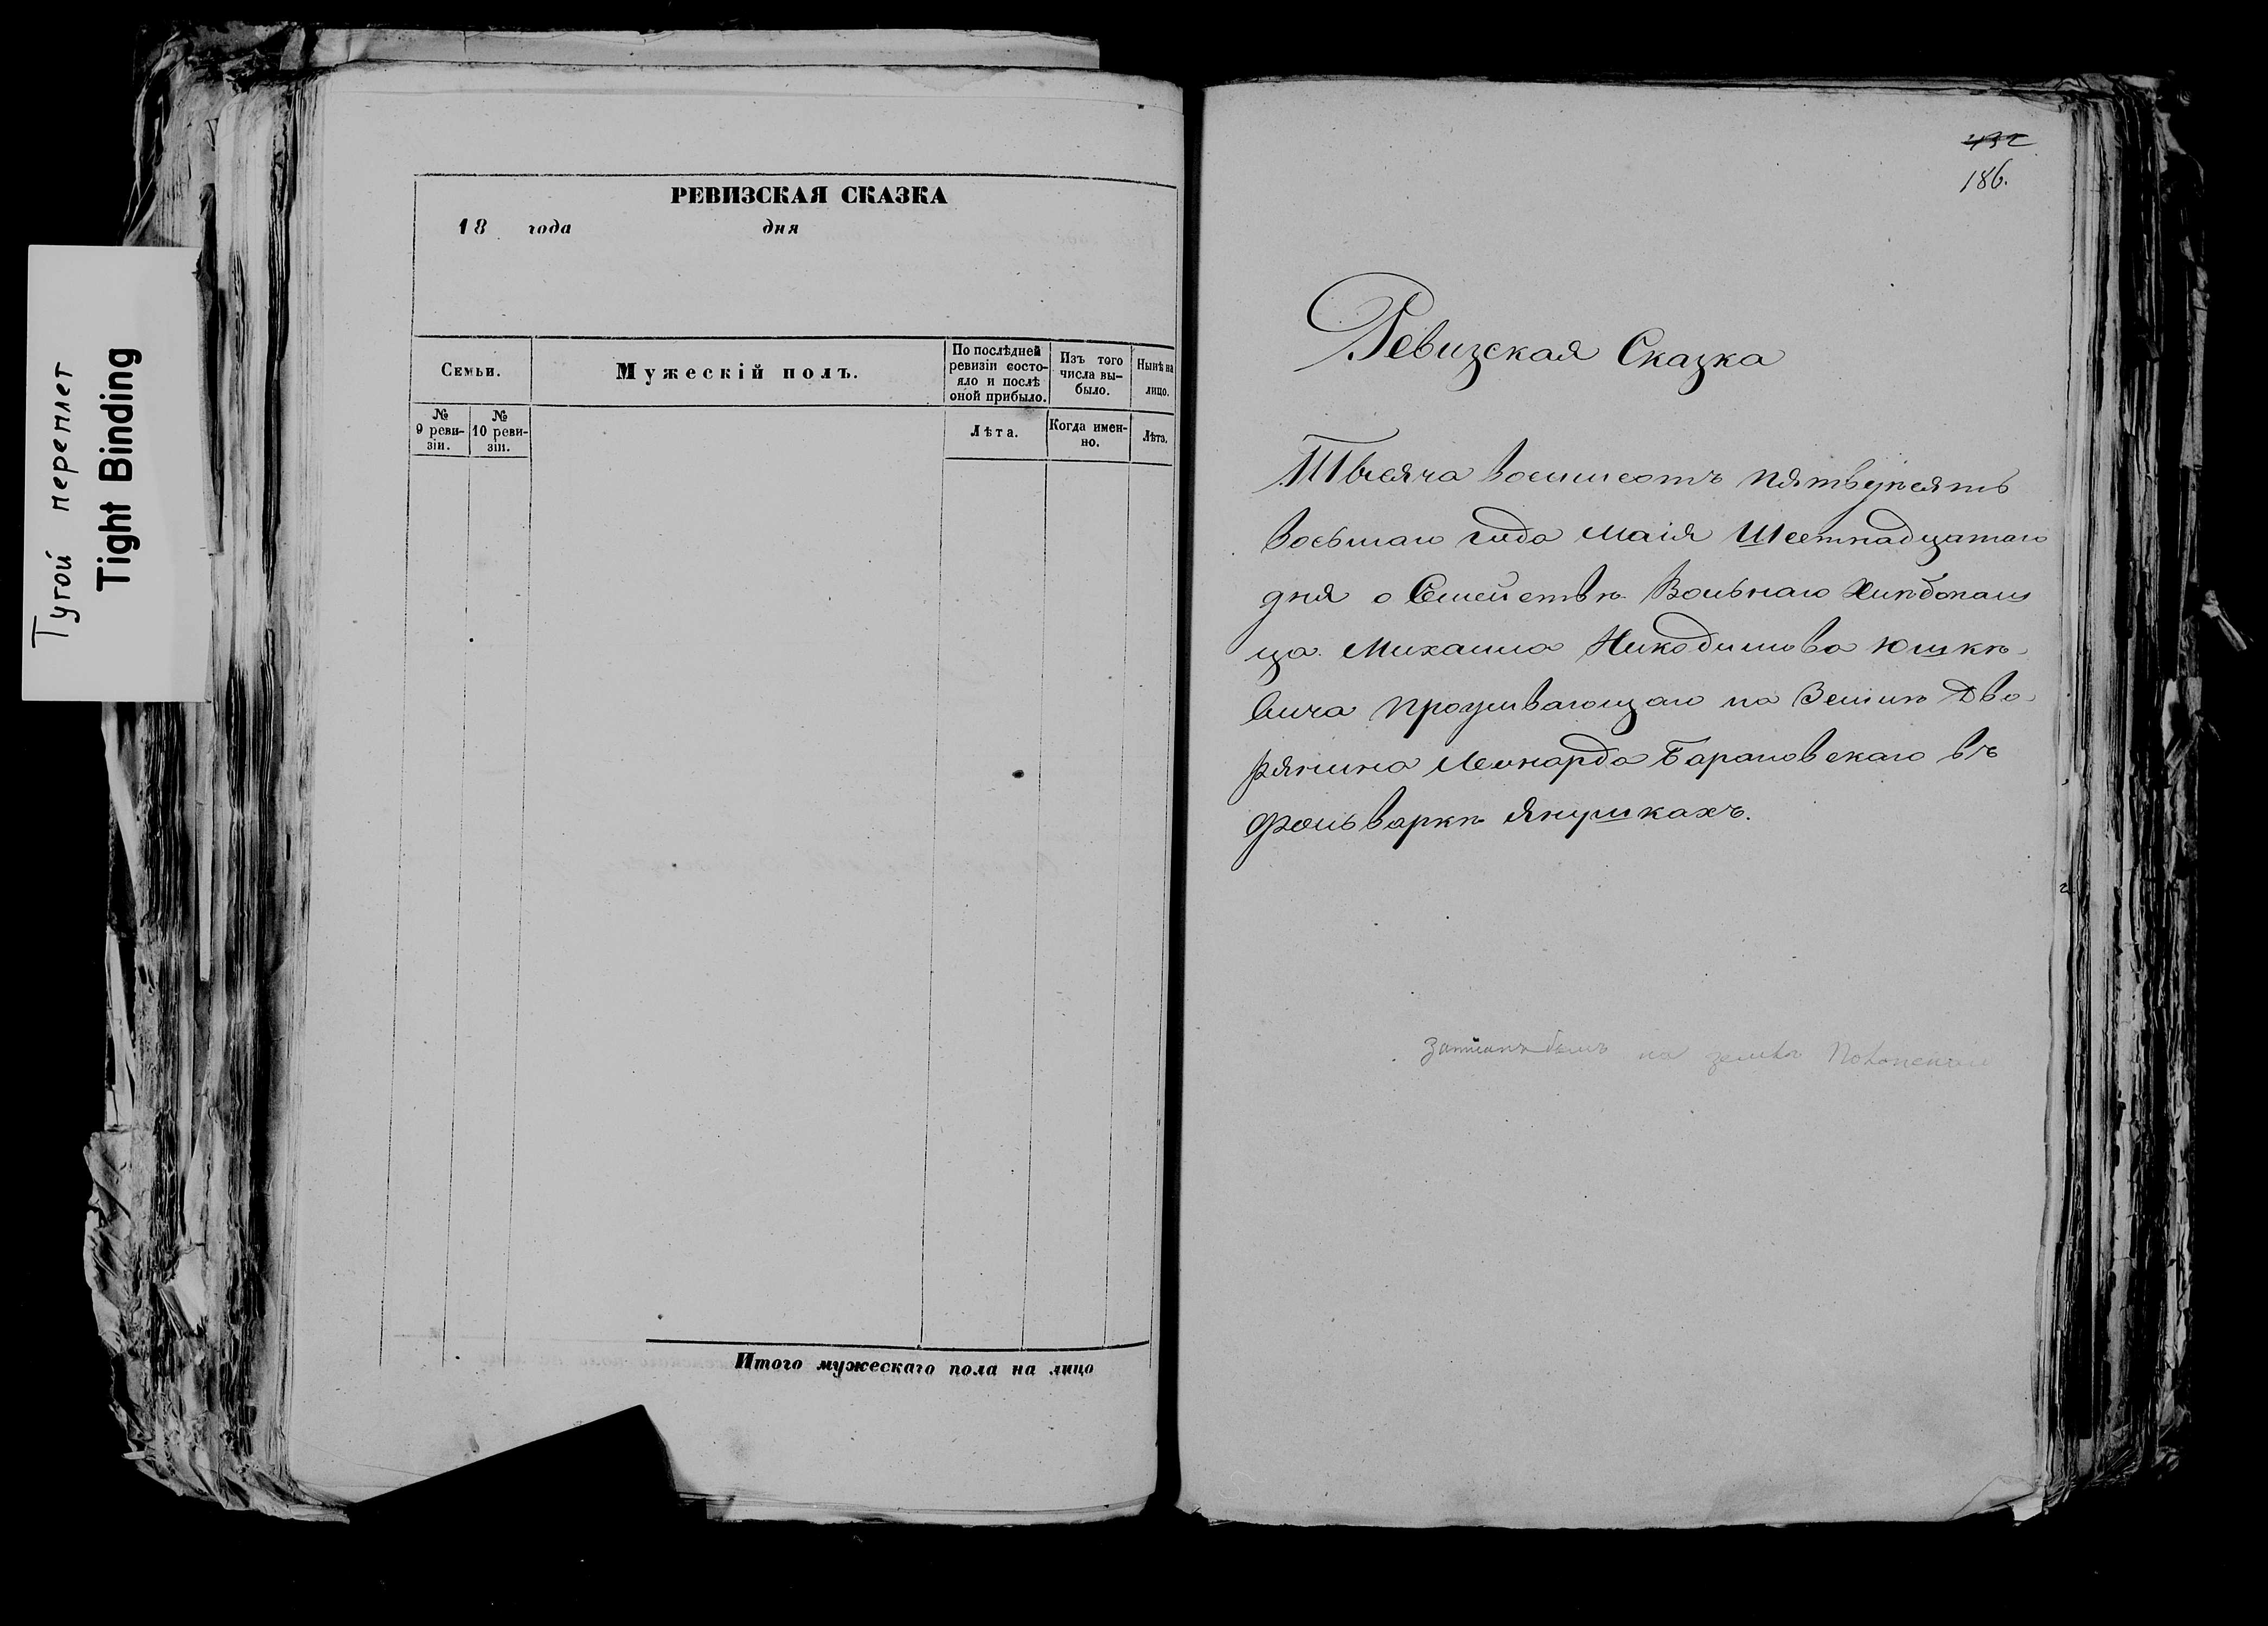 Тугой переплет
Tight Binding
РЕВИЗСКАЯ СКАЗКА
18 года дня
Семьи.
Мужескій полъ.
По послѣдней ревизіи состо-
яло и послѣ
оной прибыло.
Изъ того
числа вы-
было.
Нынѣ на
лицо.
№
9 реви-
зіи.
№
10 реви-
зіи.
Лѣта.
Когда имен-
но.
Лѣта.
Итого мужескаго пола на лицо
186.
Ревизская Сказка
Тысяча восемьсотъ пятьдесятъ
восьмаго года Маія Шестнадцатаго
дня о Семействѣ Вольнаго Хлѣбопаш
ца Михаила Никодимова Юшкѣ-
вича проживающаго на Землѣ Дво-
рянина Леонарда Барановскаго въ
фольваркѣ Янушкахъ.
Записанъ былъ на землѣ